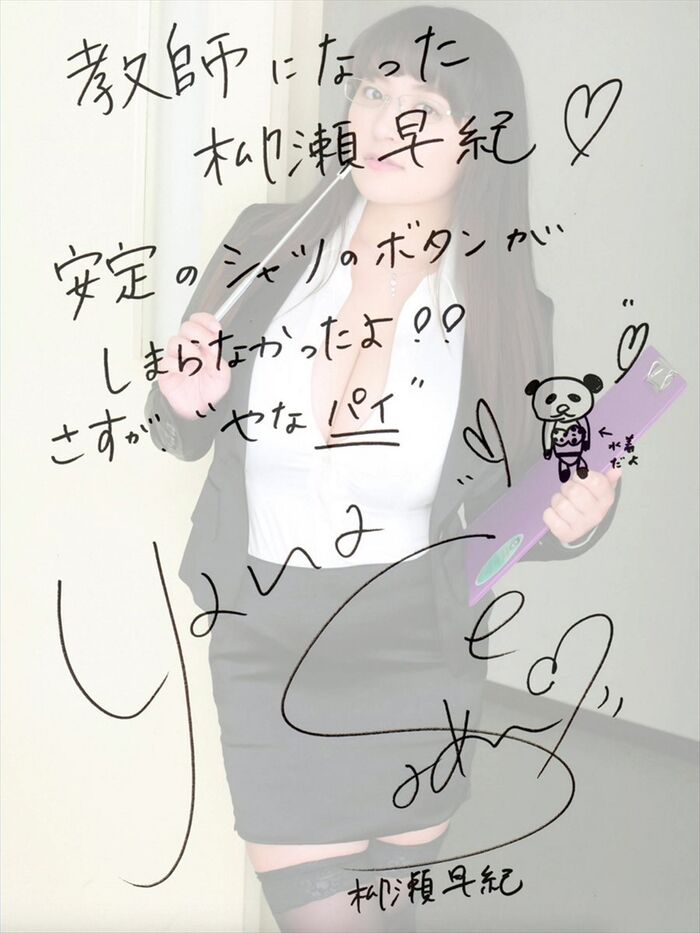 教師になった
柳瀬早紀♡
安定のシャツのボタンが
しまらなかったよ!!
さすが"やなパイ"
←水着
だよ
yanase
Saki
柳瀬早紀